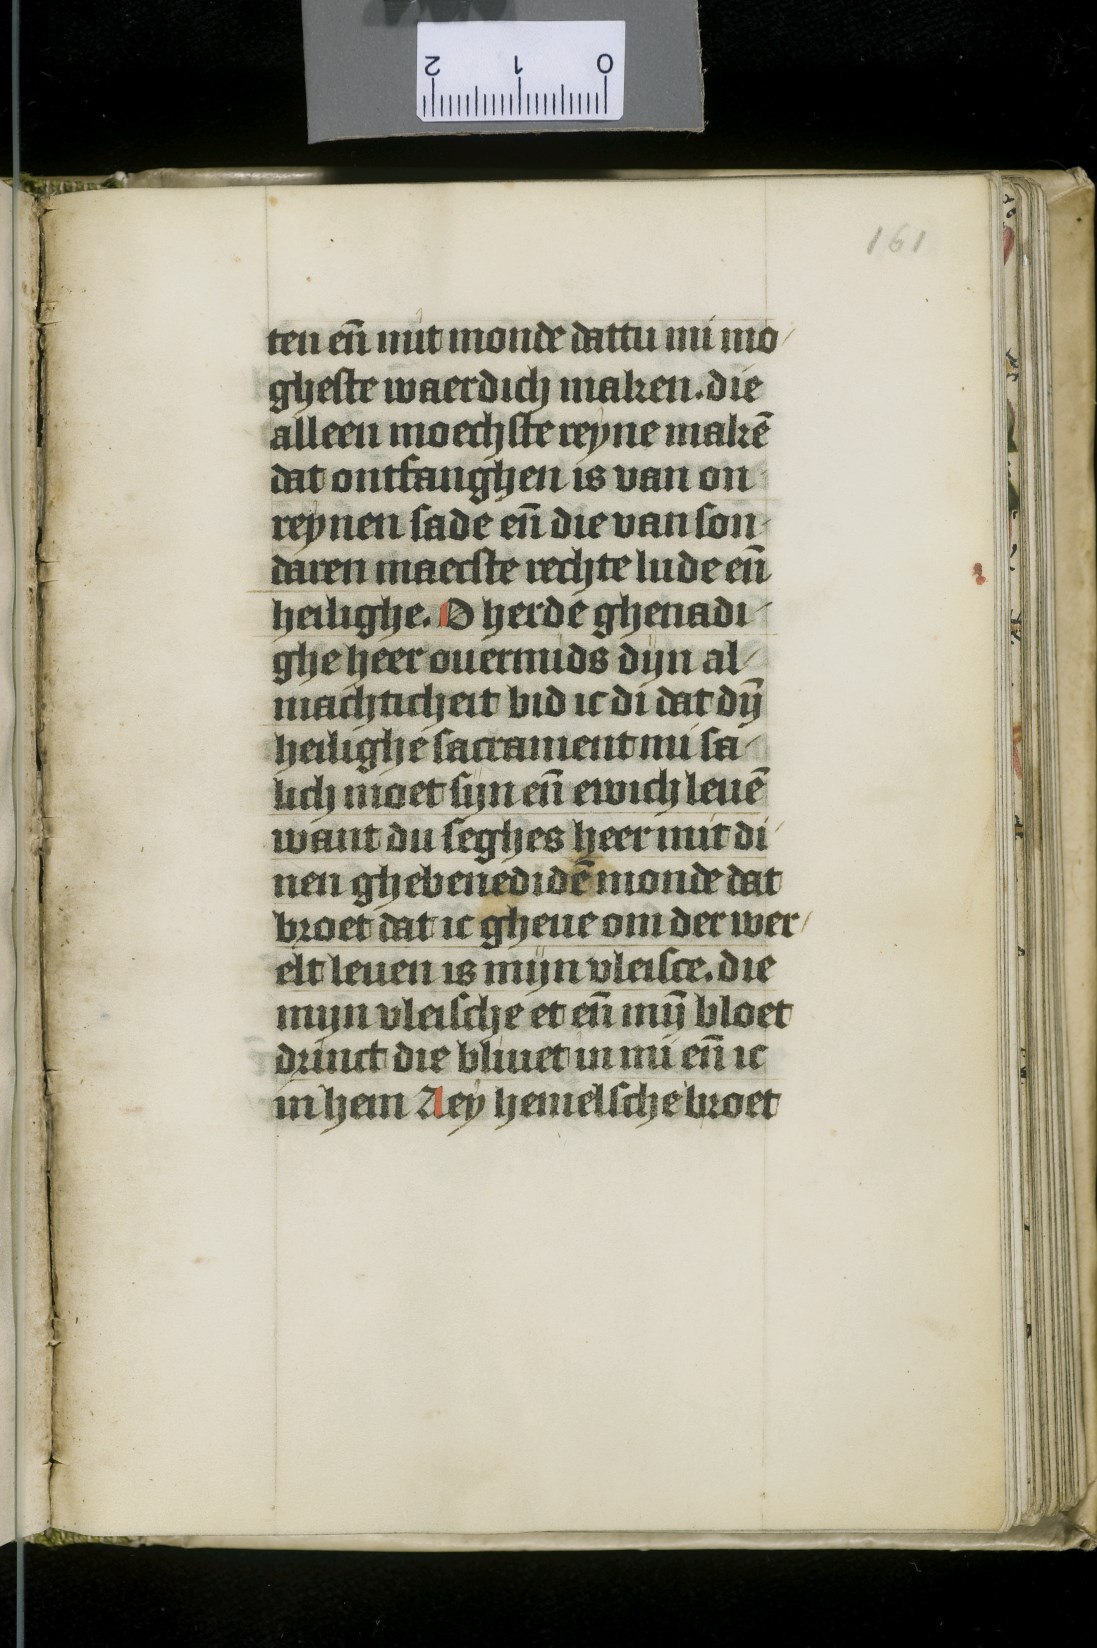 2 1 0
161
ten en̄ mit monde dattu mi mo/
gheste waerdich maken. die
alleen moechste reyne makē
dat ontfanghen is van on-
reynen sade en̄ die van son-
daren maecste rechte lude en̄
heilighe. O herde ghenadi-
ghe heer ouermids dijn al-
machticheit bid ic di dat dȳ
heilighe sacrament mi sa-
lich moet sijn en̄ ewich leuē
want du seghes heer mit di-
nen ghebenedidē monde dat
broet dat ic gheue om der wer/
elt leuen is mijn vleisce. die
mijn vleische et en̄ mȳ bloet
drinct die bliuet in mi en̄ ic
in hem Aey hemelsche broet